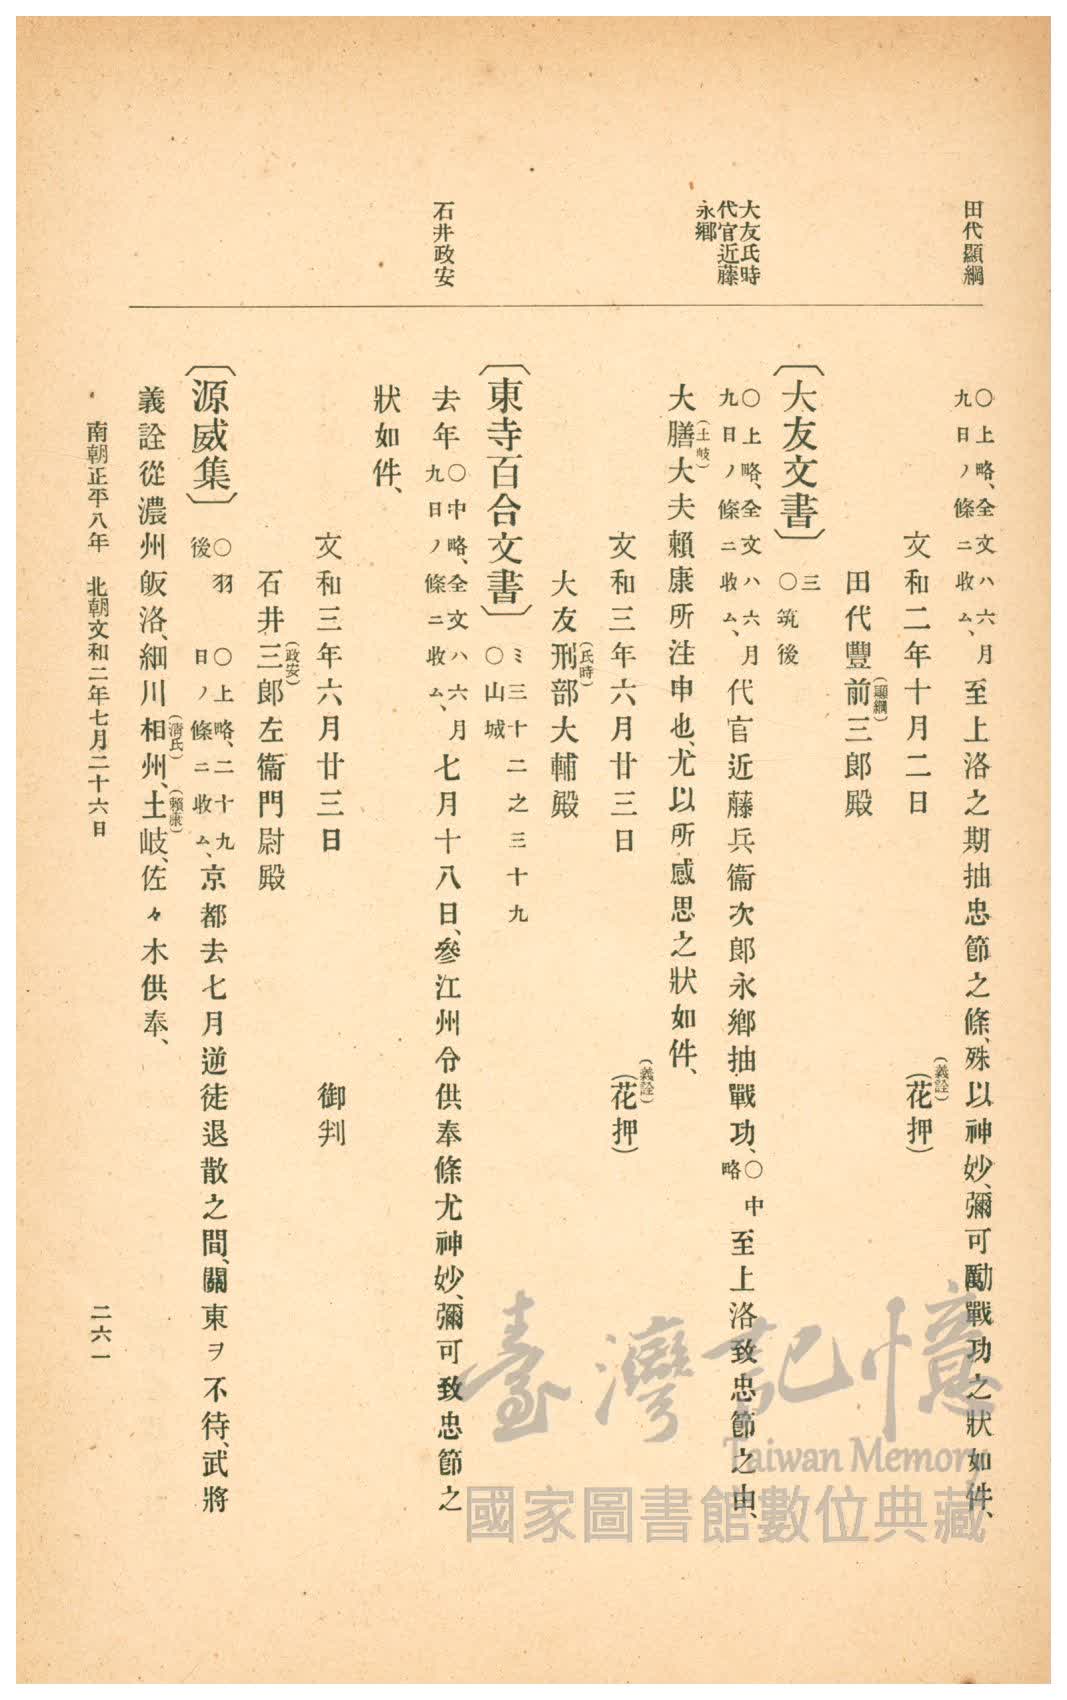 田代顯綱
大友氏時
代官近藤
永鄉
石井政安
〇上略、全文ハ六月
九日ノ條ニ收ム、
至上洛之期抽忠節之條、殊以神妙、彌可勵戰功之狀如件、
文和二年十月二日
(義詮)
(花押)
田代豐前三郎殿
(顯綱)
〔大友文書〕
三
〇筑後
〇上略、全文ハ六月
九日ノ條ニ收ム、
代官近藤兵衞次郎永鄉抽戰功、
〇中
略
至上洛致忠節之由、
大膳大夫賴康所注申也、尤以所感思之狀如件、
(土岐)
文和三年六月廿三日
(義詮)
(花押)
大友刑部大輔殿
(氏時)
〔東寺百合文書〕
ミ三十二之三十九
〇山城
去年
〇中略、全文ハ六月
九日ノ條ニ收ム、
七月十八日、參江州令供奉條尤神妙、彌可致忠節之
狀如件、
文和三年六月廿三日
御判
石井三郎左衞門尉殿
(政安)
〔源威集〕
〇羽
後
〇上略、二十九
日ノ條ニ收ム、
京都去七月逆徒退散之間、關東ヲ不待、武將
義詮從濃州皈洛、細川相州、土岐、佐々木供奉、
(淸氏)
(賴康)
南朝正平八年 北朝文和二年七月二十六日
二六一
臺灣記憶
Taiwan Memory
國家圖書館數位典藏